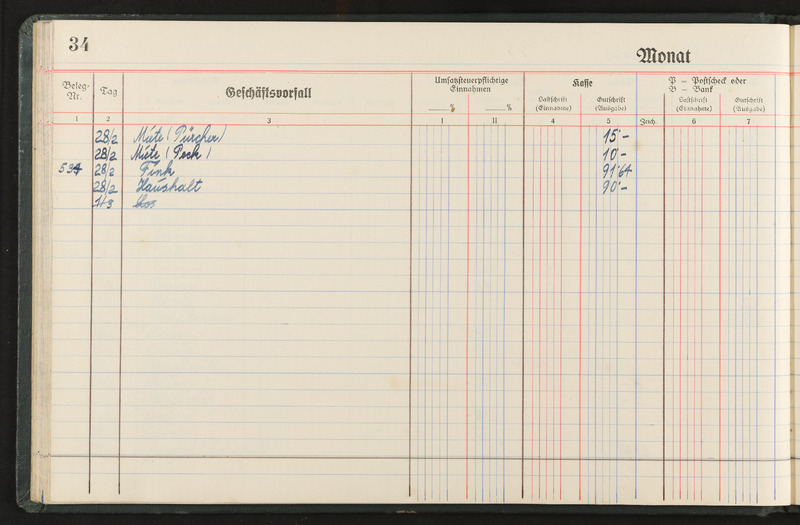 34
Monat
Beleg-Nr. Tag Geschäftsvorfall Umsatzsteuerpflichtige Einnahmen Kasse P – Postscheck oder B – Bank
% % Lastschrift (Einnahme) Gutschrift (Ausgabe) Lastschrift (Einnahme) Gutschrift (Ausgabe)
1 2 3 I II 4 5 Zeich. 6 7
28/2 Miete (Pürcher) 15'–
28/2 Miete (Peck) 10'–
534 28/2 Fink 91'64
28/2 Haushalt 90'–
1/3